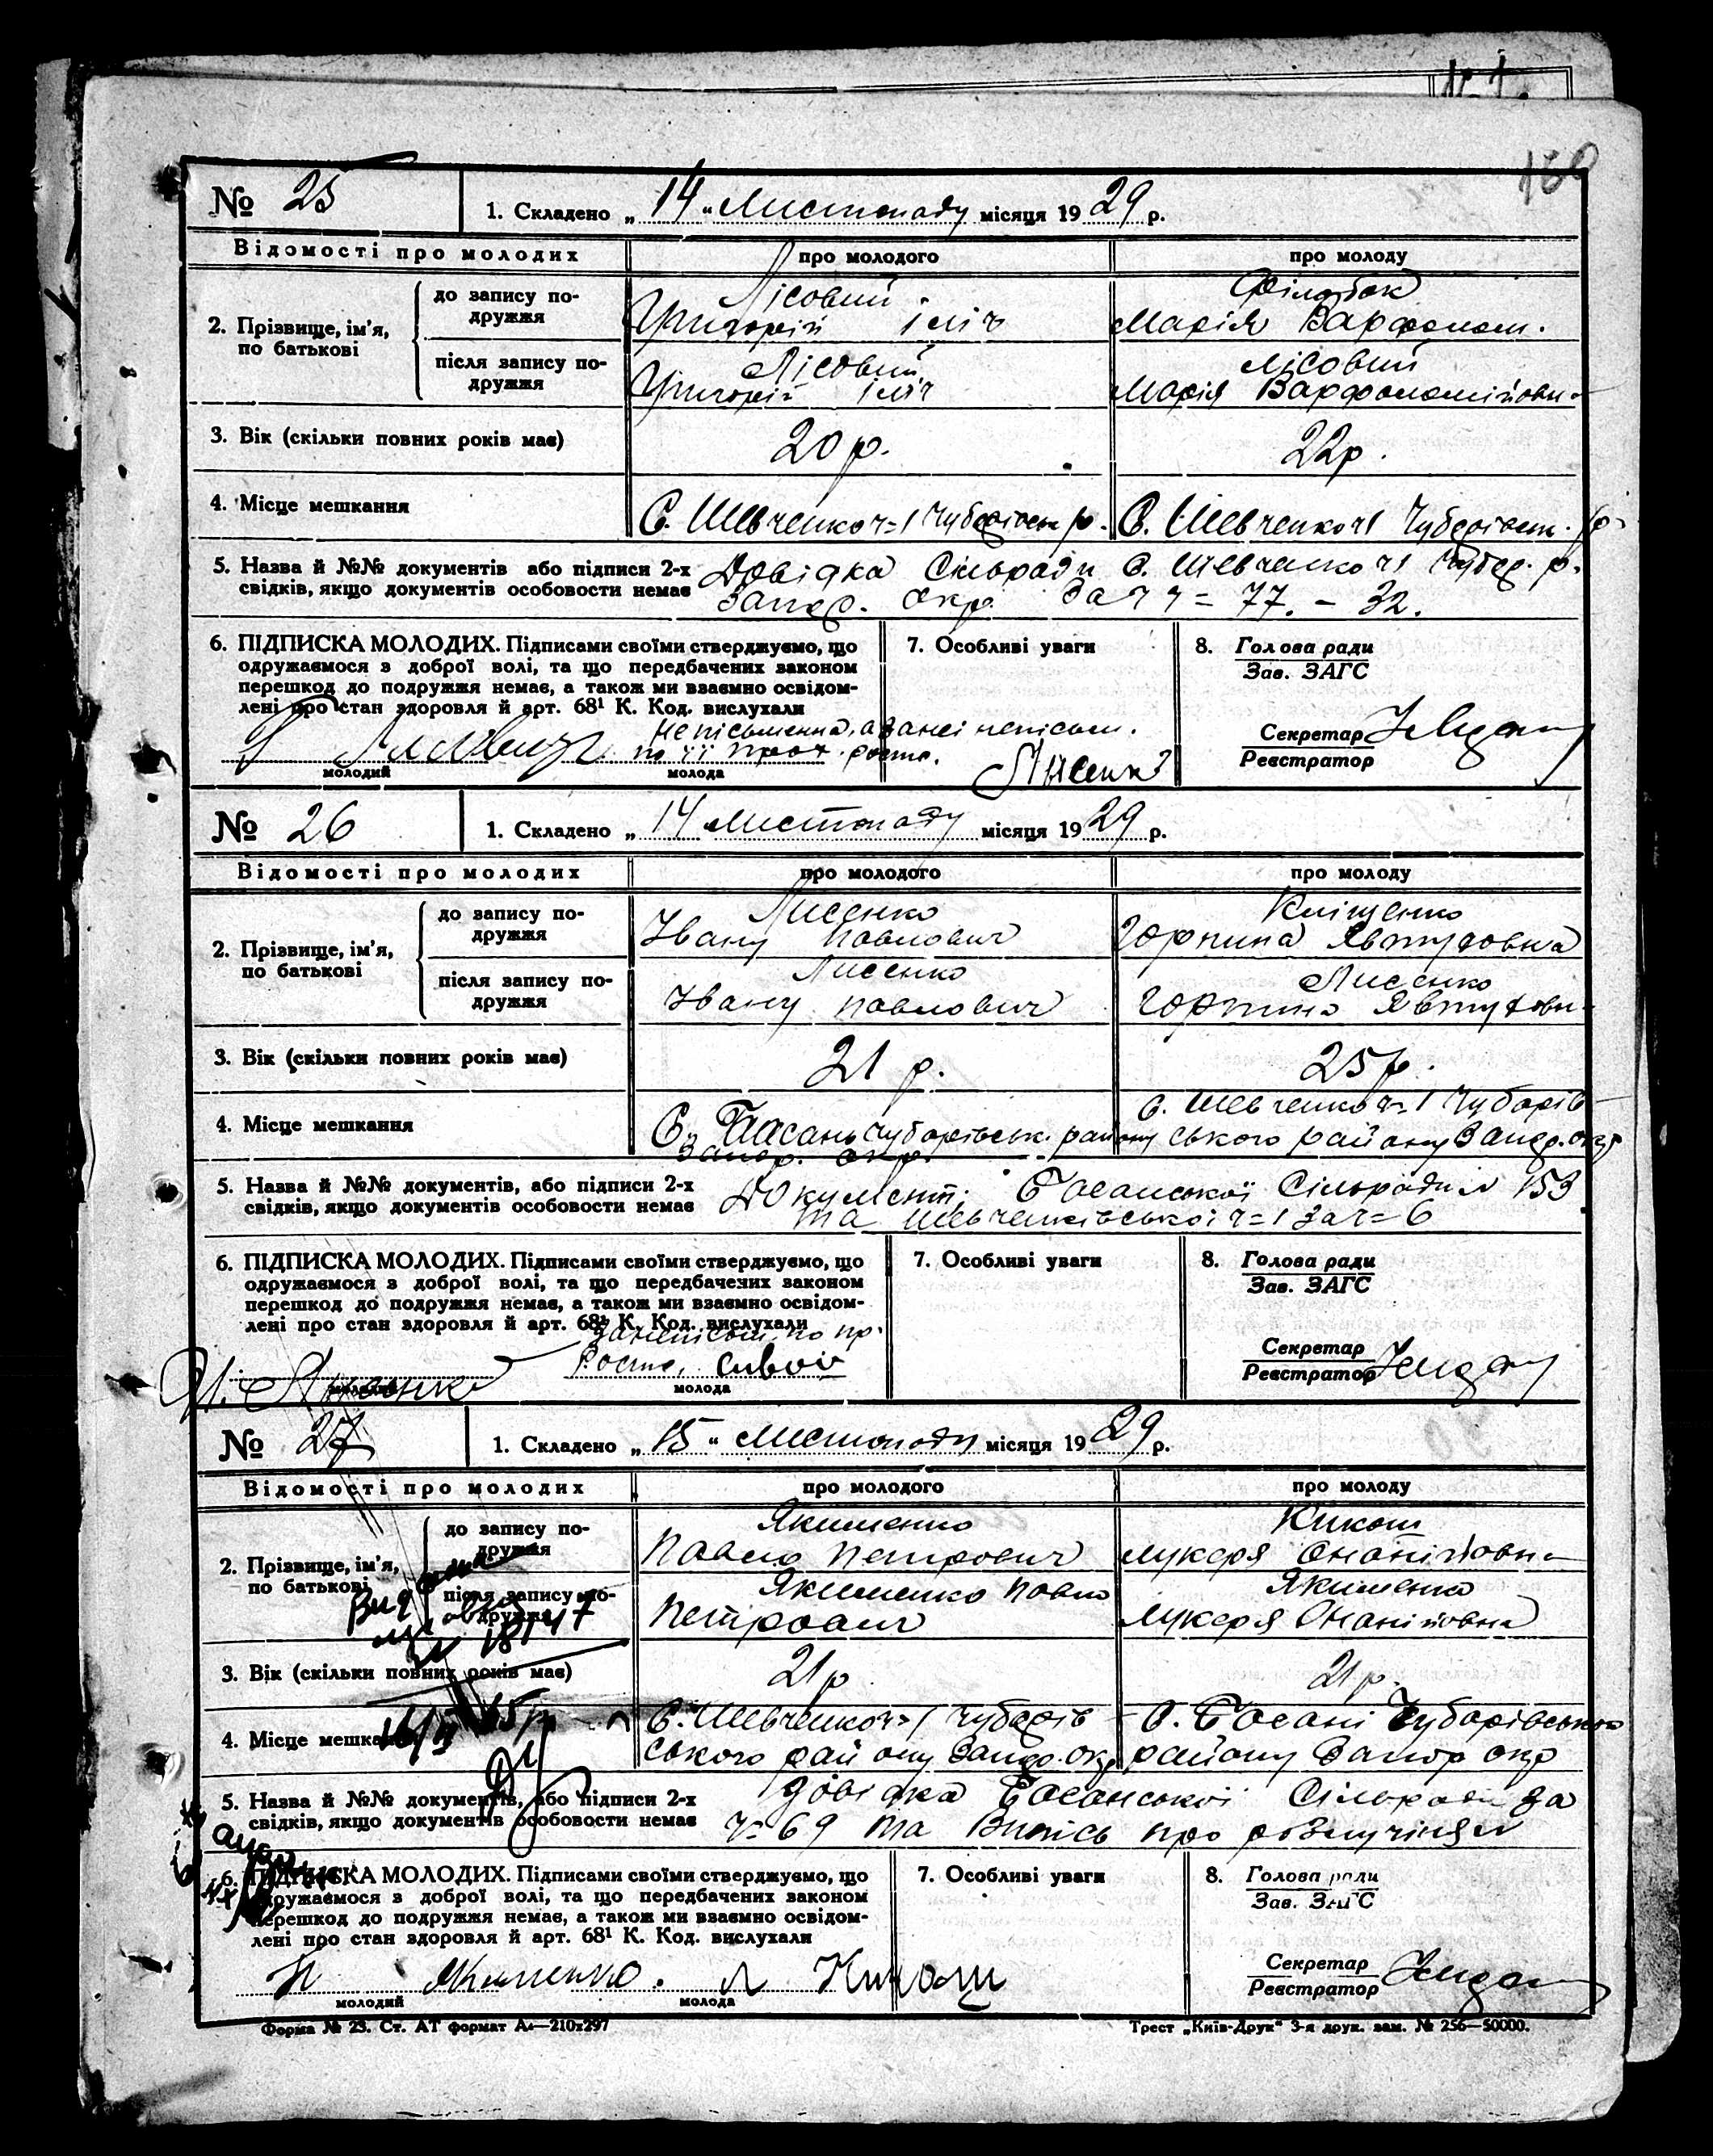 № 25 1. Складено „14" Листопаду місяця 1929 р.
Відомості про молодих про молодого про молоду
2. Прізвище, ім'я, по батькові
до запису по-
дружжя
Лісовий
Григорій Іліч
Марія Варфолом.
після запису по-
дружжя
Лісовий
Григорій Іліч
Лісовий
Марія Варфоломійовн-
3. Вік (скільки повних років має) 20 р. 22 р.
4. Місце мешкання С. Шевченко ч=1 Чубарівськ р. С. Шевченко ч1 Чубарівськ. р.
5. Назва й №№ документів або підписи 2-х
свідків, якщо документів особовости немає
Довідка Сільради С. Шевченко ч1 Чубар. р.
Запор. Окр. За ч = 77. – 32.
6. ПІДПИСКА МОЛОДИХ. Підписами своїми стверджуємо, що
одружаємося з доброї волі, та що передбачених законом
перешкод до подружжя немає, а також ми взаємно освідом-
лені про стан здоровля й арт. 68¹ К. Код. вислухали
неписьменна, а за неї
по її прох. розпис.
молодий молода
7. Особливі уваги
8. Голова ради
Зав. ЗАГС
Секретар
Реєстратор
№ 26 1. Складено „14 Листопаду місяця 1929 р.
Відомості про молодих про молодого про молоду
2. Прізвище, ім'я, по батькові
до запису по-
дружжя
Лисенко
Івану Павлович
Кліщенко
Горпина Явтуховна
після запису по-
дружжя
Лисенко
Івану Павлович
Лисенко
Горпина Явтуховн-
3. Вік (скільки повних років має) 21 р. 25 р.
4. Місце мешкання
С. Басань Чубарівськ. району
Запор. окр.
С. Шевченко ч=1 Чубарів-
ського району Запор. окр
5. Назва й №№ документів, або підписи 2-х
свідків, якщо документів особовости немає
Документ: Басанської Сільради № 153
та Шевченківської ч=1 за ч=6
6. ПІДПИСКА МОЛОДИХ. Підписами своїми стверджуємо, що
одружаємося з доброї волі, та що передбачених законом
перешкод до подружжя немає, а також ми взаємно освідом-
лені про стан здоровля й арт. 68¹ К. Код. вислухали
Лысенко
молода
7. Особливі уваги
8. Голова ради
Зав. ЗАГС
Секретар
Реєстратор
№ 27 1. Складено „15" Листопаду місяця 1929 р.
Відомості про молодих про молодого про молоду
2. Прізвище, ім'я, по батькові
до запису по-
дружжя
Якименко
Павло Петрович
Кикош
Лукеря Онаніївна
після запису по-
дружжя
Якименко Павло
Петрович
Якименко
Лукеря Онаніївна
3. Вік (скільки повних років має) 21 р 21 р.
4. Місце мешкання
С. Шевченко ч=1 Чубарів-
ського району Запор. окр
С. Басані Чубарівського
району Запор окр
5. Назва й №№ документів, або підписи 2-х
свідків, якщо документів особовости немає
Довідка Басанської Сільради за
ч=69 та Випись про розлучіння
6. ПІДПИСКА МОЛОДИХ. Підписами своїми стверджуємо, що
одружаємося з доброї волі, та що передбачених законом
перешкод до подружжя немає, а також ми взаємно освідом-
лені про стан здоровля й арт. 68¹ К. Код. вислухали
П Якименко. Л Кикош
молодий молода
7. Особливі уваги
8. Голова ради
Зав. ЗАГС
Секретар
Реєстратор
Форма № 23. Ст. АТ формат А₄—210х297 Трест „Київ-Друк" 3-я друк. зам. № 256—50000.